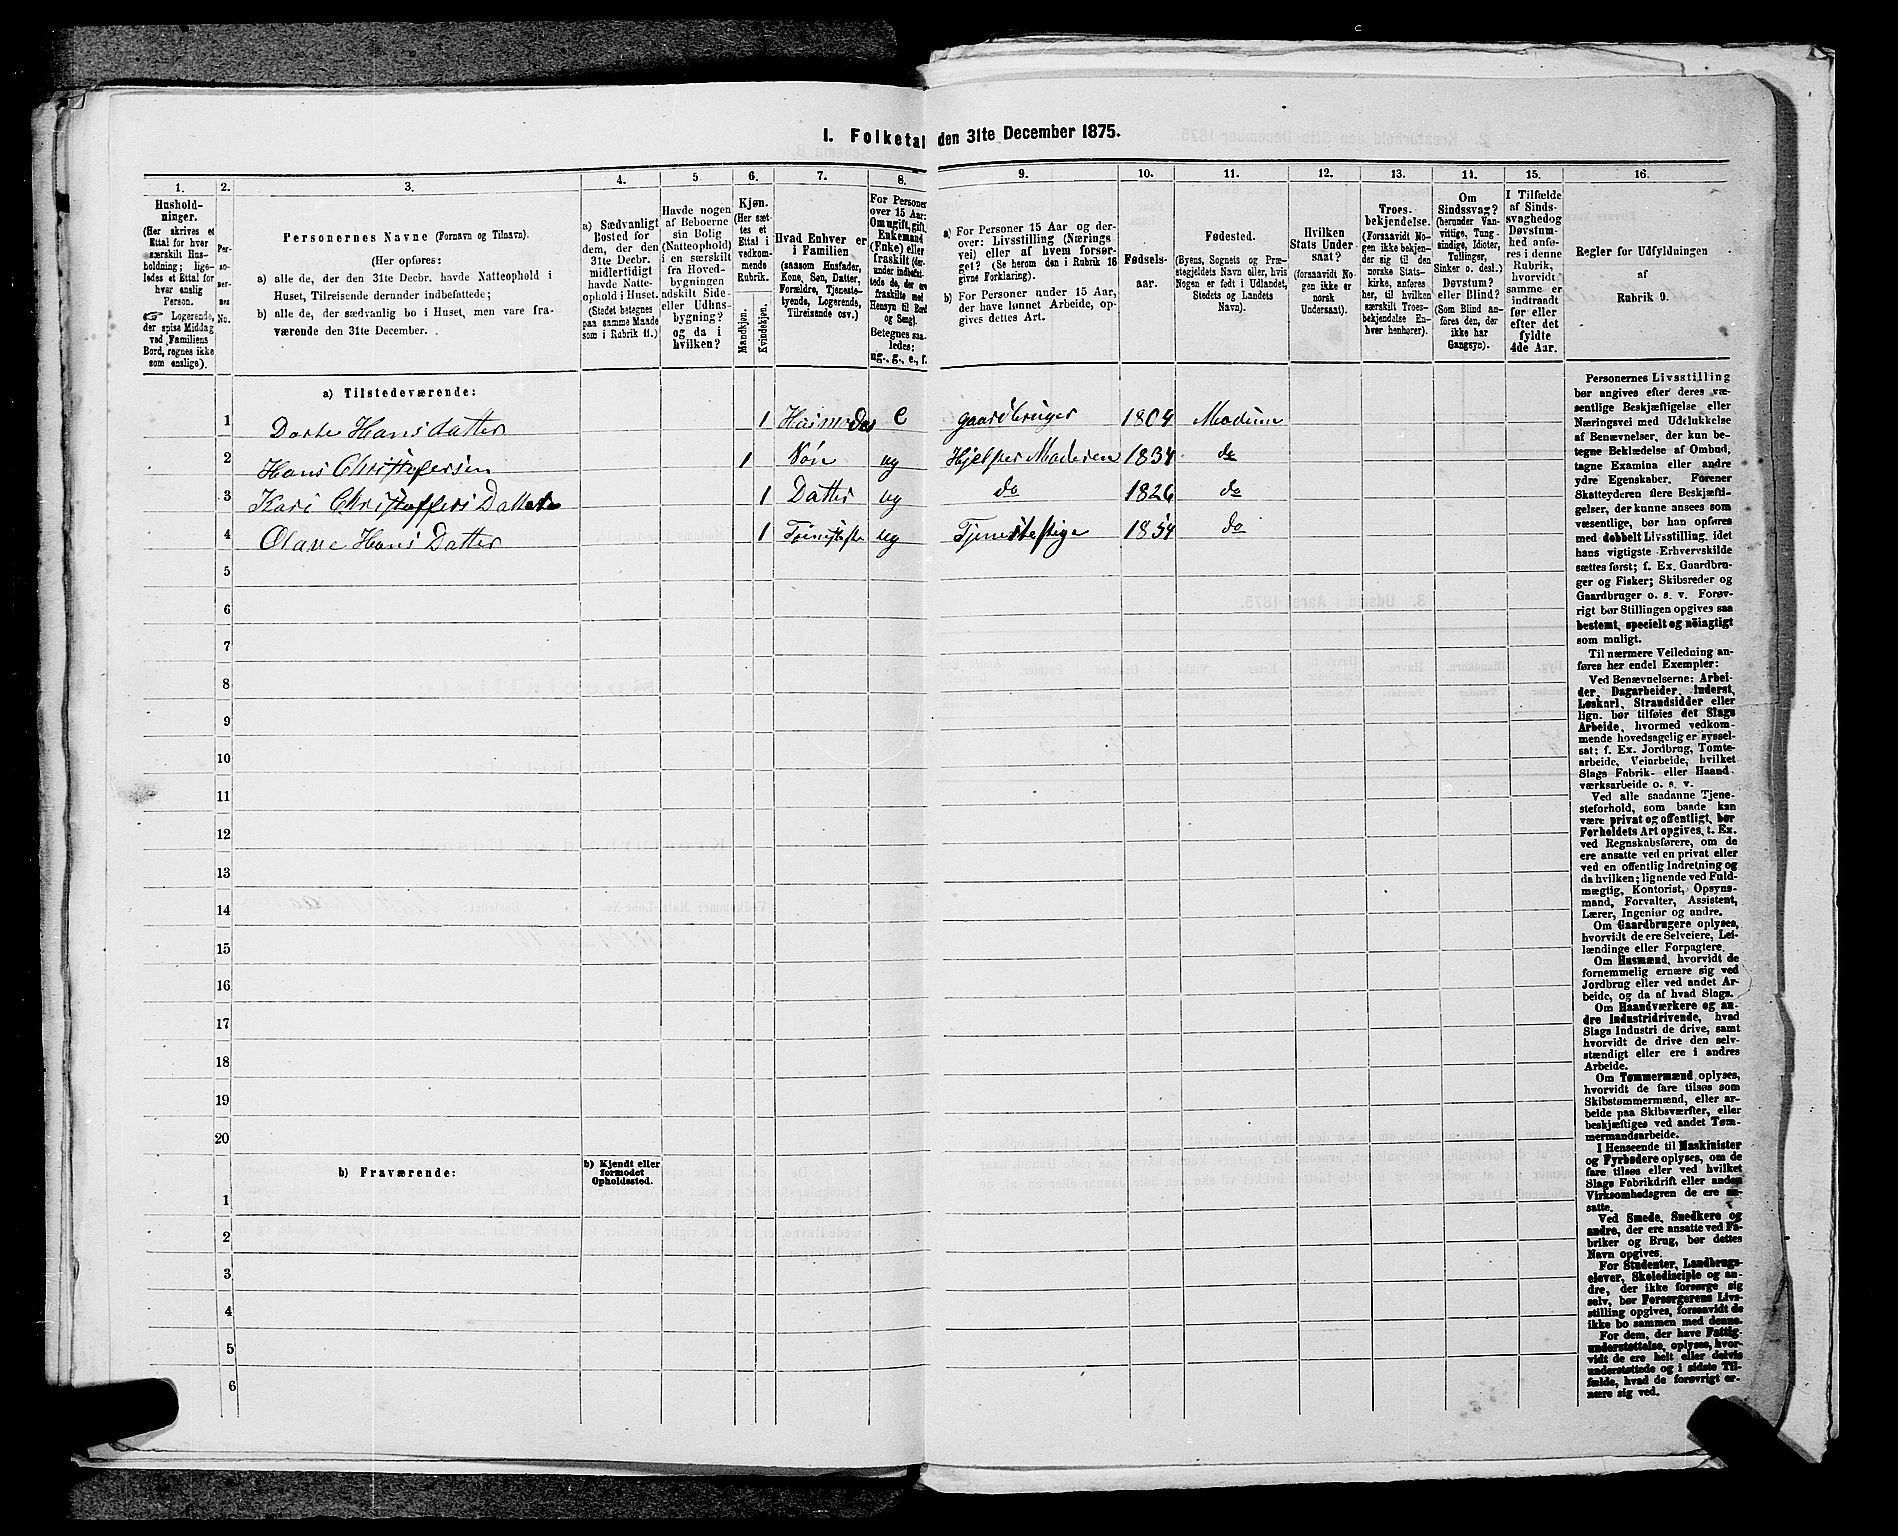 I. Folketal den 31te December 1875.
1.
2.
3.
4.
5
6.
7.
8.
9.
10.
11.
12.
13.
11.
15.
16.
Hushold-
ninger.
(Her skrives et
Ettal for hver
særskilt Hus-
holdning; lige-
ledes et Ettal for
hver enslig
Person.
☞ Logerende,
der spise Middag
ved Familiens
Bord, regnes ikke
som enslige).
Per-
so-
ner-
nes
No.
Personernes Navne (Fornavn og Tilnavn).
(Her opføres:
a) alle de, der den 31te Decbr. havde Natteophold i
Huset, Tilreisende derunder indbefattede;
b) alle de, der sædvanlig bo i Huset, men vare fra-
værende den 31te December.
a) Sædvanligt
Bosted for
dem, der den
31te Decbr.
midlertidigt
havde Natte-
ophold i Huset.
(Stedet betegnes
paa samme Maade
som i Rubrik 11.)
Havde nogen
af Beboerne
sin Bolig
(Natteophold)
i en særskilt
fra Hoved-
bygningen
adskilt Side-
eller Udhus-
bygning?
og da i
hvilken?
Kjøn.
(Her sæt
tes et
Ettal i
vedkom-
mende
Rubrik.
Mandkjøn.
Kvindekjøn.
Hvad Enhver er
i Familien
(saasom Husfader,
Kone, Søn, Datter,
Forældre, Tjeneste-
tyende, Logerende,
Tilreisende osv.)
For Personer
over 15 Aar:
Om ugift, gift,
Enkemand
(Enke) eller
fraskilt (der-
under indbefat-
tede de, der ere
fraskilte med
Hensyn til Bord
og Seng).
Betegnes saa-
ledes:
ug., g., e., f.
a) For Personer 15 Aar og der-
over: Livsstilling (Nærings
vei) eller af hvem forsør-
get? (Se herom den i Rubrik 16
givne Forklaring).
b) For Personer under 15 Aar,
der have lønnet Arbeide, op-
gives dettes Art.
Fødsels-
aar.
Fødested.
(Byens, Sognets og Præ-
stegjeldets Navn eller, hvis
Nogen er født i Udlandet,
Stedets og Landets
Navn).
Hvilken
Stats Under
saat?
(forsaavidt No-
gen ikke er
norsk
Undersaat).
Troes-
bekjendelse.
(Forsaavidt No-
gen ikke bekjen-
der sig til den
norske Stats-
kirke, anføres
her, til hvilken
særskilt Troes-
bekjendelse En-
hver henhører).
Om
Sindssvag?
(herunder Van-
vittige, Tung-
sindige, Idioter,
Tullinger,
Sinker o. desl.)
Døvstum?
eller Blind?
(Som Blind an-
føres den, der
ikke har
Gangsyn).
I Tilfælde
af Sinds-
svaghed og
Døvstum-
hed anfø-
res i denne
Rubrik,
hvorvidt
samme er
indtraadt
før eller
efter det
fyldte
4de Aar.
Regler for Udfyldningen
af
Rubrik 9.
a) Tilstedeværende:
1 Dorte Hans datter 1 Huismodes e gaardbruger 1804 Modum
2 Hans Christofersen 1 Søn ug Hjelper Moderen 1834 do
3 Kari Christoffers Datter 1 Datter ug do 1826 do
4 Olave Hans Datter 1 ug 1854 do
5
6
7
8
9
10
11
12
13
14
15
16
17
18
19
20
b) Fraværende:
b) Kjendt eller
formodet
Opholdssted.
1
2
3
4
5
6
Personernes Livsstilling
bør angives efter deres væ-
sentlige Beskjæftigelse eller
Næringsvei med Udelukkelse
af Benævnelser, der kun be-
tegne Beklædelse af Ombud,
tagne Examina eller andre
ydre Egenskaber. Forener
Skatteyderen flere Beskjæftig-
gelser, der kunne ansees som
væsentlige, bør han opføres
med dobbelt Livsstilling, idet
hans vigtigste Erhvervskilde
sættes først; f. Ex. Gaardbru-
ger og Fisker; Skibsreder og
Gaardbruger o. s. v. Forøv-
rigt bør Stillingen opgives saa
bestemt, specielt og nöiagtigt
som muligt.
Til nærmere Veiledning an-
føres her endel Exempler:
Ved Benævnelserne: Arbei-
der, Dagarbeider, Inderst,
Løskarl, Strandsidder eller
lign. bør tilføies det Slags
Arbeide, hvormed vedkom-
mende hovedsagelig er syssel-
sat; f. Ex. Jordbrug, Tomte-
arbeide, Veiarbeide, hvilket
Slags Fabrik- eller Haand-
værksarbeide o. s. v.
Ved alle saadanne Tjene-
steforhold, som baade kan
være privat og offentligt, bør
Forholdets Art opgives, t. Ex.
ved Regnskabsførere, om de
ere ansatte ved en privat eller
ved en offentlig Indretning og
da hvilken; lignende ved Fuld-
mægtig, Kontorist, Opsyns-
mand, Forvalter, Assistent,
Lærer, Ingeniør og andre.
Om Gaardbrugere oplyses,
hvorvidt de ere Selveiere, Lei-
lændinge eller Forpagtere.
Om Husmænd, hvorvidt de
fornemmelig ernære sig ved
Jordbrug eller ved andet Ar-
beide, og da af hvad Slags.
Om Haandværkere og an-
dre Industridrivende, hvad
Slags Industri de drive, samt
hvorvidt de drive den selv-
stændigt eller ere i andres
Arbeide.
Om Tømmermænd oplyses,
hvorvidt de fare tilsøs som
Skibstømmermænd, eller ar-
beide paa Skibsværfter, eller
beskjæftiges ved andet Tøm-
mermandsarbeide.
I Henseende til Maskinister
og Fyrbødere oplyses, om de
fare tilsøs eller ved hvilket
Slags Fabrikdrift eller anden
Virksomhedsgren de ere an-
satte.
Ved Smede, Snedkere og
andre, der ere ansatte ved Fa-
briker og Brug, bør dettes
Navn opgives.
For Studenter, Landbrugs-
elever, Skoledisciple og an-
dre, der ikke forsørge sig
selv, bør Forsørgerens Livs-
stilling opgives, forsaavidt de
ikke bo sammen med denne.
For dem, der have Fattig-
understøttelse, oplyses, hvor-
vidt de ere helt eller delvis
understøttede og i sidste Til-
fælde, hvad de forøvrigt er-
nære sig ved.